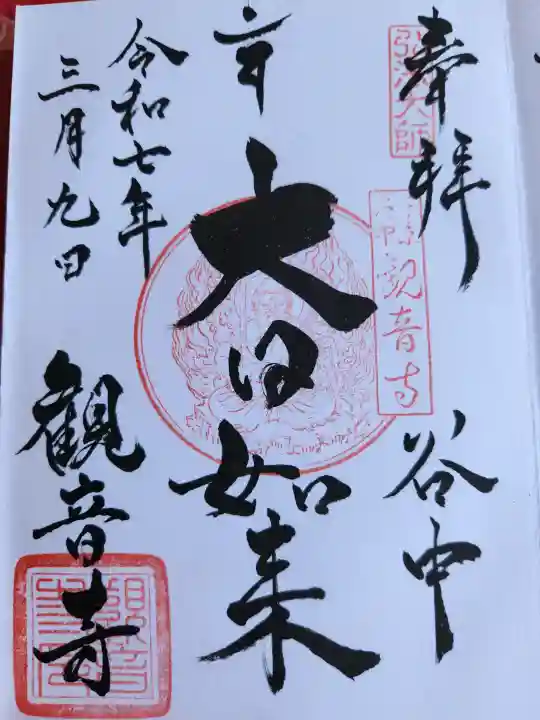 奉拝
弘法大師
観音寺
谷中
大日如来
令和七年
三月九日
観音寺